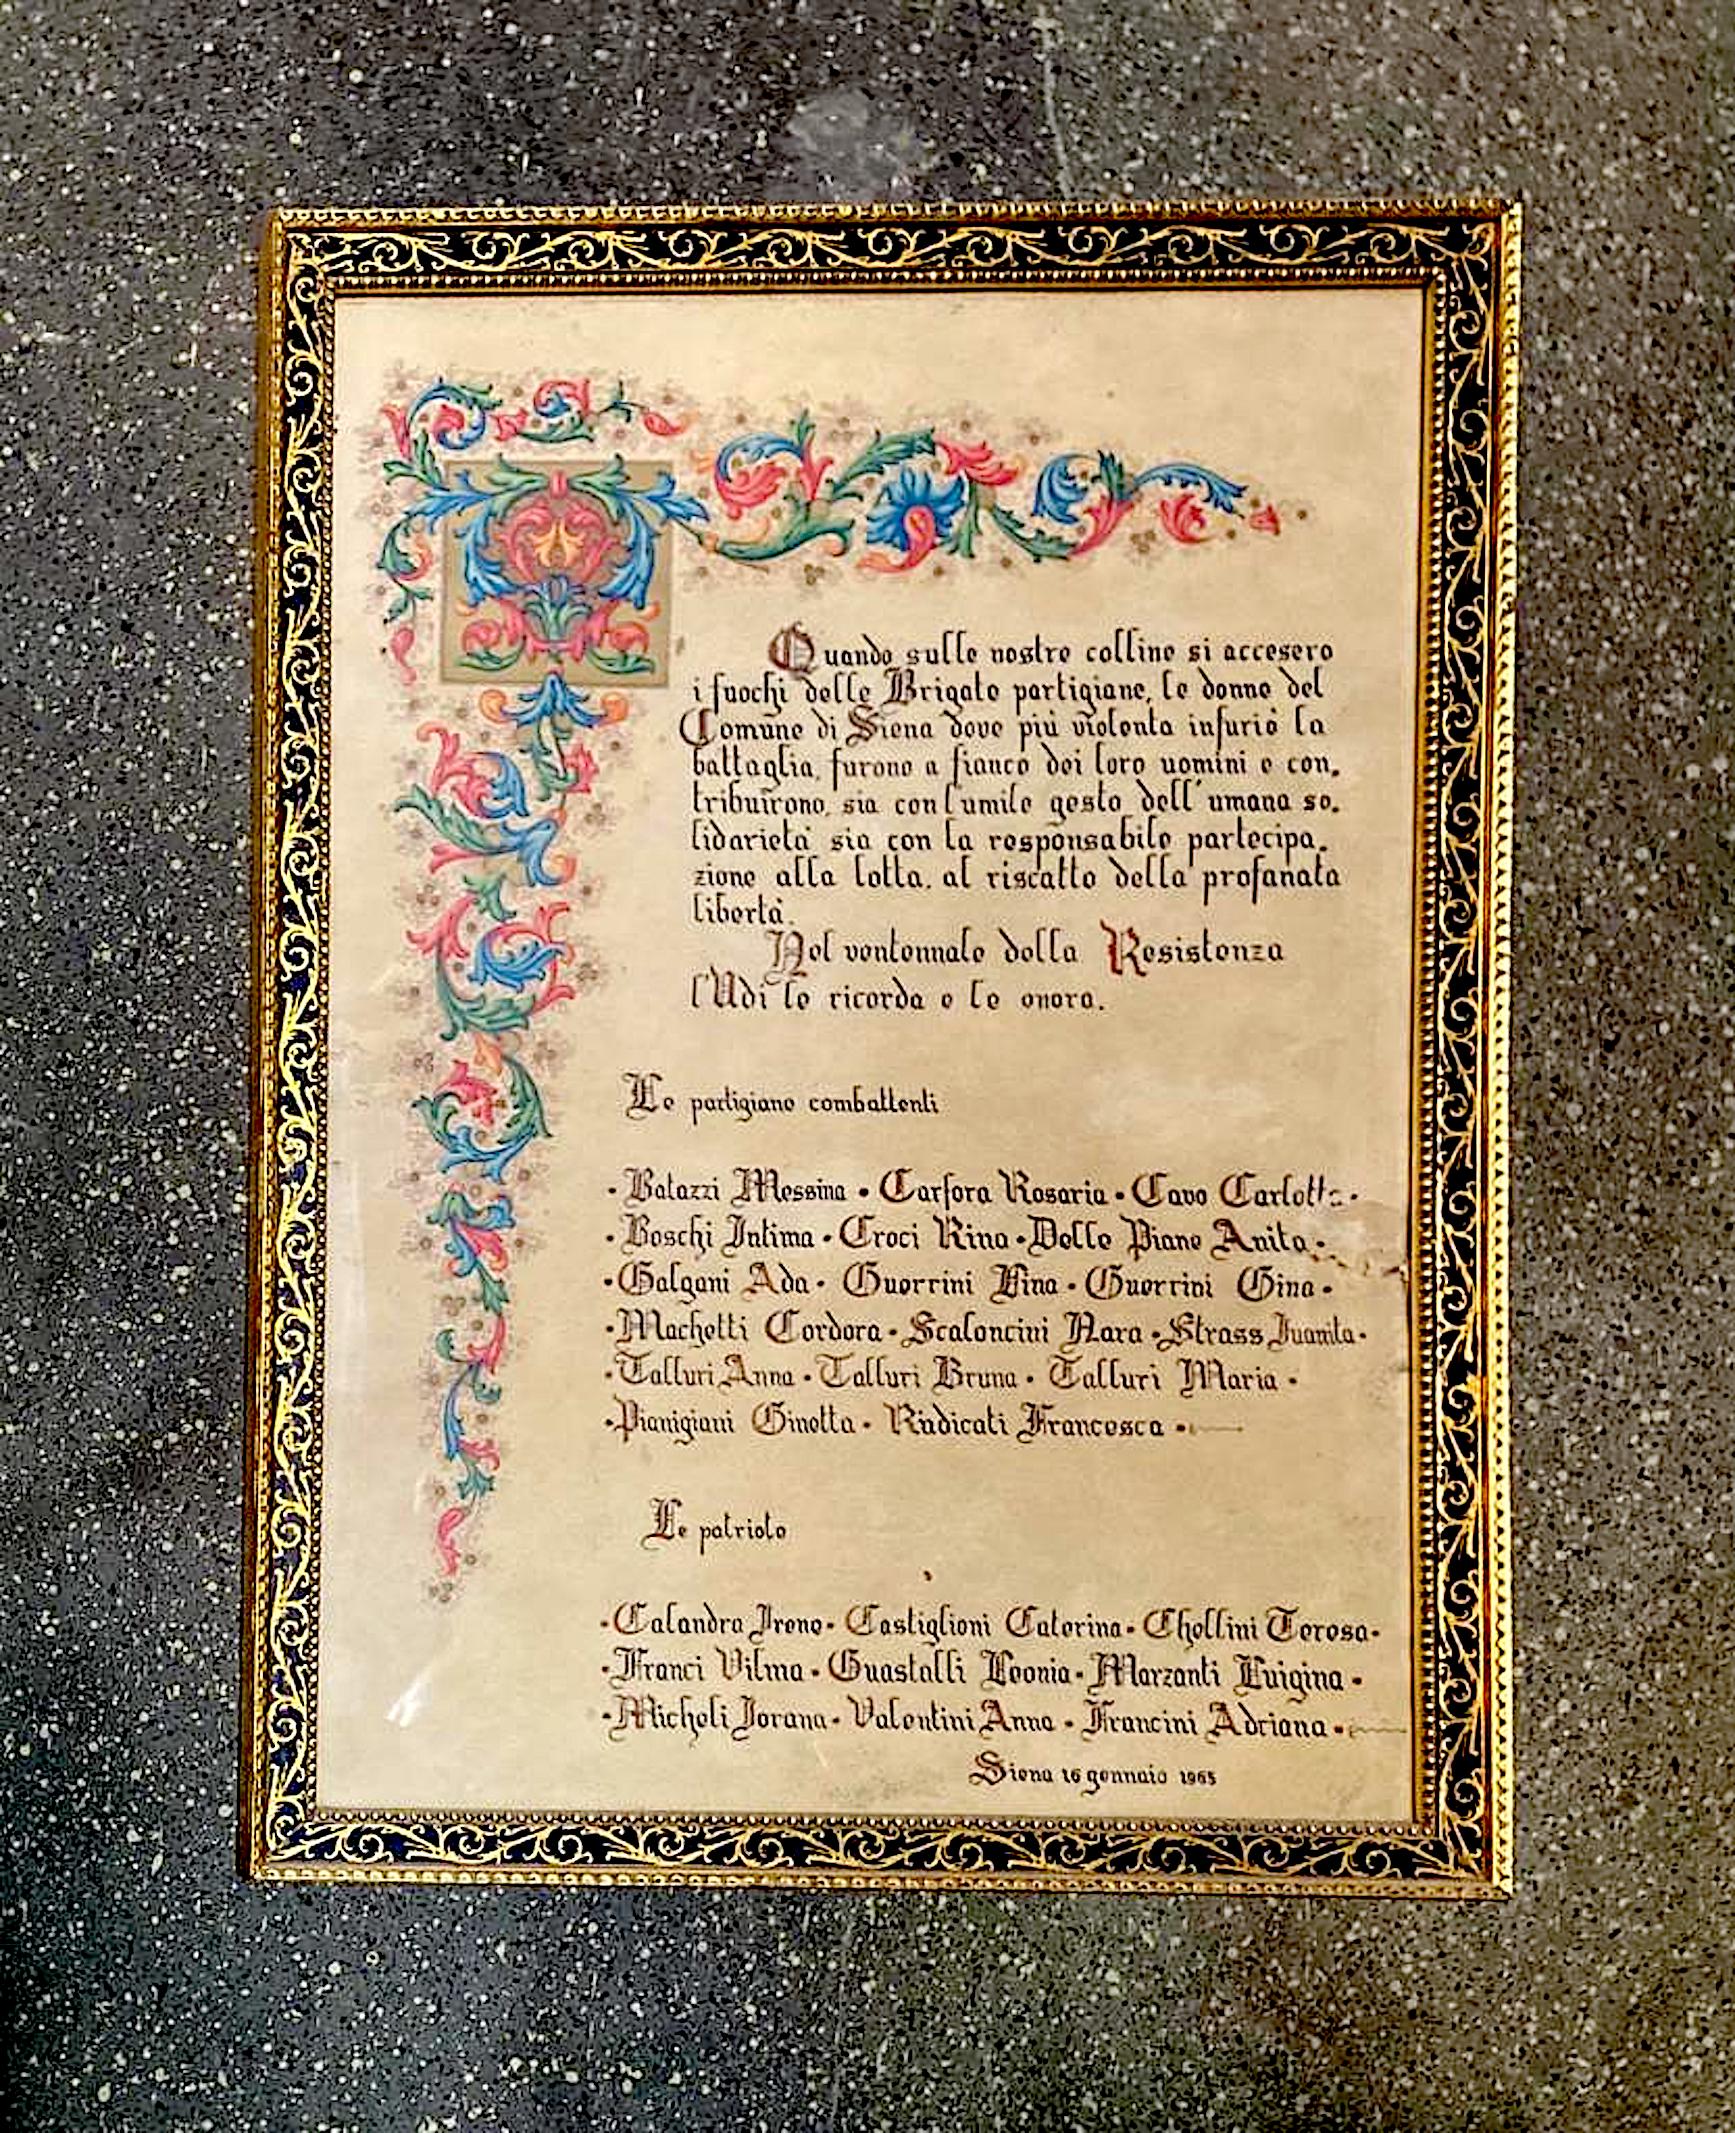 Quando sulle nostre colline si accesero
i fuochi delle Brigate partigiane, le donne del
Comune di Siena dove più violenta infuriò la
battaglia, furono a fianco dei loro uomini e con.
tribuirono, sia con l'umile gesto dell'umana so.
lidarietà sia con la responsabile partecipa.
zione alla lotta, al riscatto della profanata
libertà.
Nel ventennale della Resistenza
l'Udi le ricorda e le onora.
Le partigiane combattenti
• Batazzi Messina • Carfora Rosaria • Cavo Carlotta •
• Boschi Intima • Croci Rina • Delle Piane Anita •
• Galgani Ada • Guerrini Lina • Guerrini Gina •
• Machetti Cordora • Scaloncini Nara • Strass Juanita •
• Talluri Anna • Talluri Bruna • Talluri Maria •
• Pianigiani Ginetta • Radicati Francesca •
Le patriote
• Calandra Irene • Castiglioni Caterina • Chellini Teresa •
• Franci Vilma • Guastalli Leonia • Marzanti Luigina •
• Micheli Jorana • Valentini Anna • Francini Adriana •
Siena 16 gennaio 1965